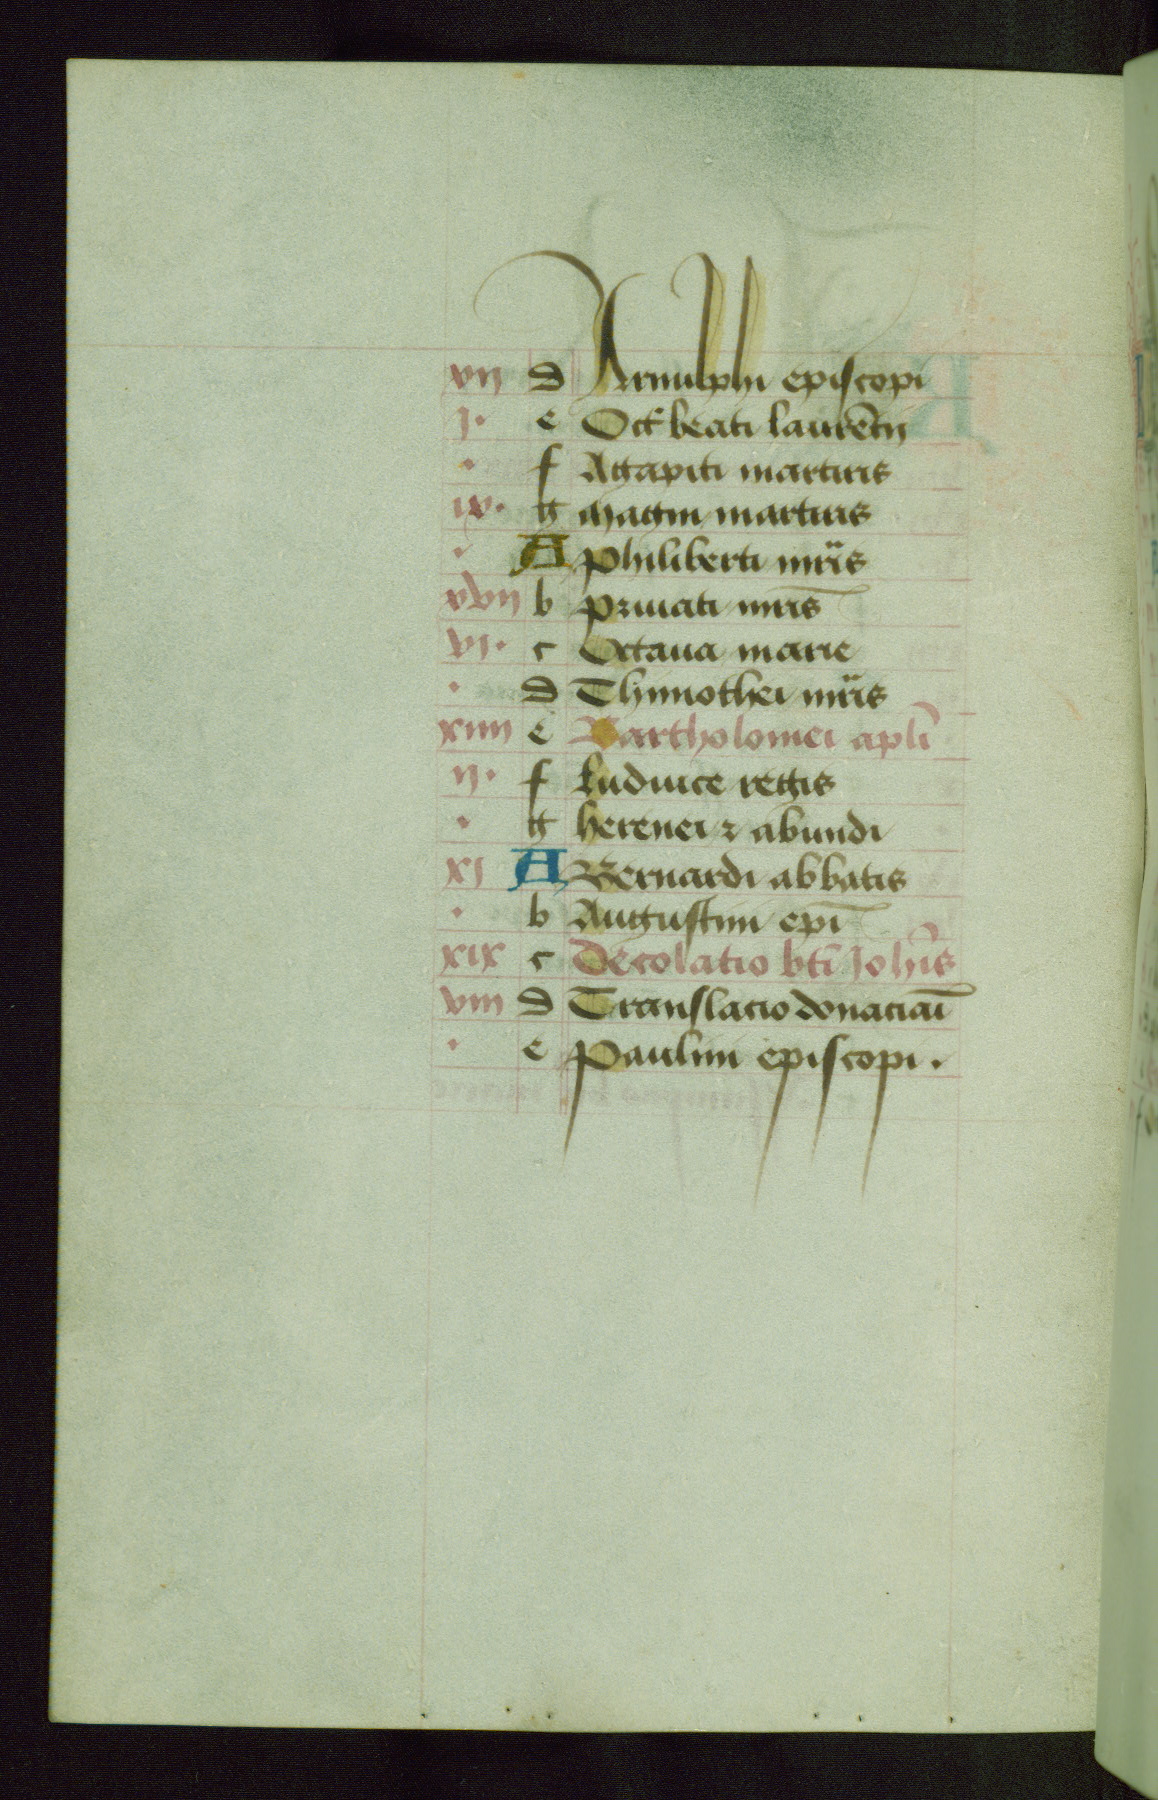 vij d Arnulphi episcopi
j. e Oct̄ beati laurētij
. f Agapiti martiris
ix. g Magni martiris
. A Philiberti mr̄is
xvij b Priuati mr̄is
vj. c Octaua marie
. d Thimothei mr̄is
xiiij e Bartholomei apl̄i
ij. f Ludiuce regis
. g herenei ⁊ abundi
xj A Bernardi abbatis
. b Augustini ep̄i
xix c Decolatio bt̄i Joh̄is
viij d Translacio donaciāi
. e Paulini episcopi.